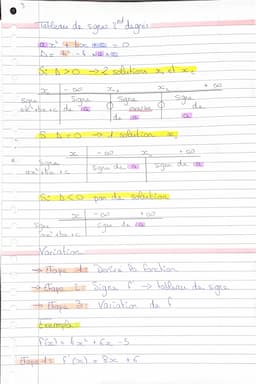 Tableau de signes 2nd degrés
ax² + bx + c = 0
Δ = b² - 4
Si Δ > 0 → 2 solutions x₁ et x₂
x -∞ x₁ x₂ +∞
Signe Signe Signe Signe
ax²+bx+c de a de
de a a
Si Δ = 0 → 1 solution
x -∞ x₀ +∞
Signe
ax²+bx+c Signe de a Signe de a
Si Δ < 0 pas de solution
x -∞ +∞
Signe Signe de a
ax²+bx+c
Variation
→ Etape 1: Derive la fonction
→ Etape 2: Signe f' → tableau de signe
→ Etape 3: Variation de f
Exemple
f(x) = 4x² + 6x - 5
Etape 1: f'(x) = 8x + 6